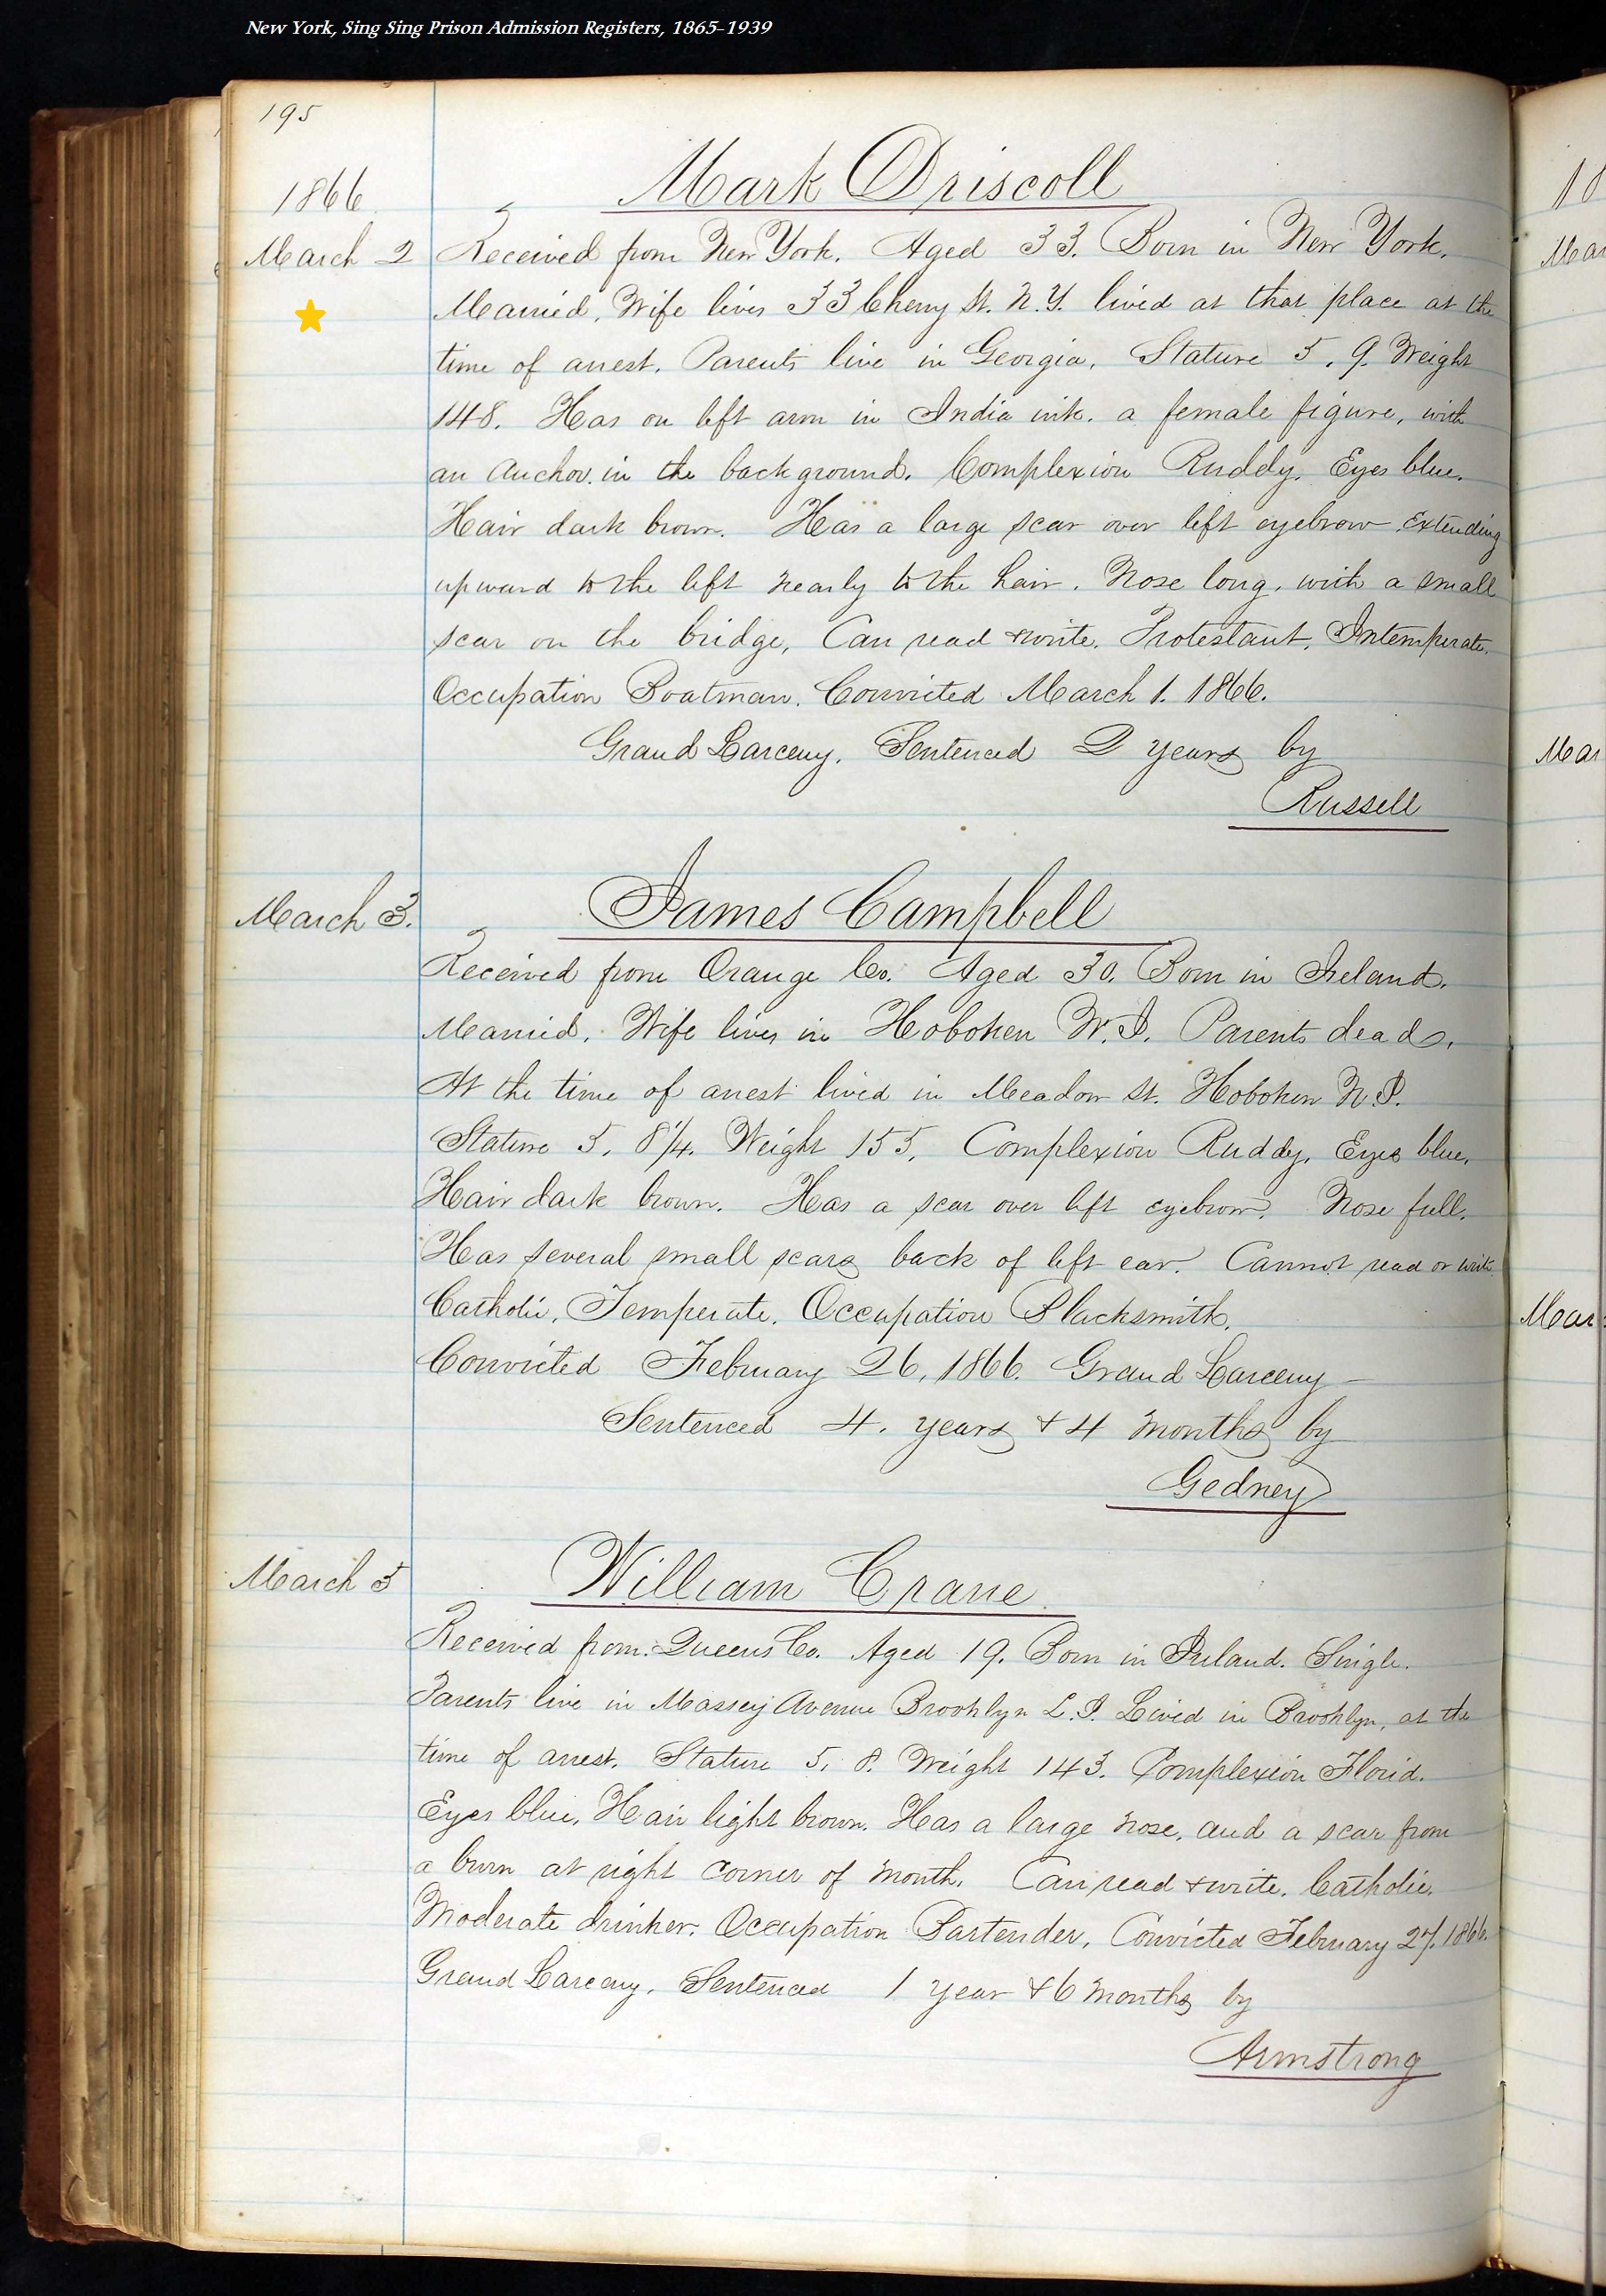 New York, Sing Sing Prison Admission Registers, 1865-1939
195
1866
Mark Driscoll
March 2
Received from New York. Aged 33. Born in New York.
Married. Wife lives 33 Cherry St. N.Y. lived at that place at the
time of arrest. Parents live in Georgia. Stature 5, 9. Weight
148. Has on left arm in India ink. a female figure, with
an anchor in the background. Complexion Ruddy. Eyes blue.
Hair dark brown. Has a large scar over left eyebrow extending
upward to the left nearly to the hair. Nose long, with a small
scar on the bridge, Can read & write. Protestant, Intemperate.
Occupation Boatman. Convicted March 1. 1866.
Grand Larceny. Sentenced 2 years by
Russell
March 3.
James Campbell
Received from Orange Co. Aged 30. Born in Ireland.
Married. Wife lives in Hoboken N.J. Parents dead.
At the time of arrest lived in Meadow St. Hoboken N.J.
Stature 5, 8 1/4. Weight 155, Complexion Ruddy, Eyes blue,
Hair dark brown. Has a scar over left eyebrow. Nose full.
Has several small scars back of left ear. Cannot read or write
Catholic, Temperate. Occupation Blacksmith.
Convicted February 26, 1866. Grand Larceny –
Sentenced 4. years & 4 months by
Gedney
March 5
William Crane
Received from Queens Co. Aged 19. Born in Ireland. Single.
Parents live in Avenue Brooklyn L.I. Lived in Brooklyn, at the
time of arrest. Stature 5, 8. Weight 143. Complexion Florid.
Eyes blue, Hair light brown. Has a large nose, and a scar from
a burn at right corner of mouth. Can read & write. Catholic.
Moderate drinker. Occupation Bartender, Convicted February 27. 1866.
Grand Larceny. Sentenced 1 year & 6 months by
Armstrong